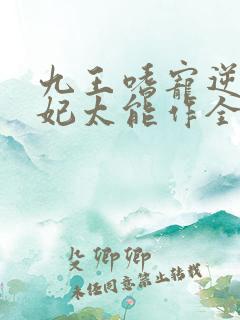 九王嗜宠逆
妃太能作全
殳卿卿
未经同意禁止转载